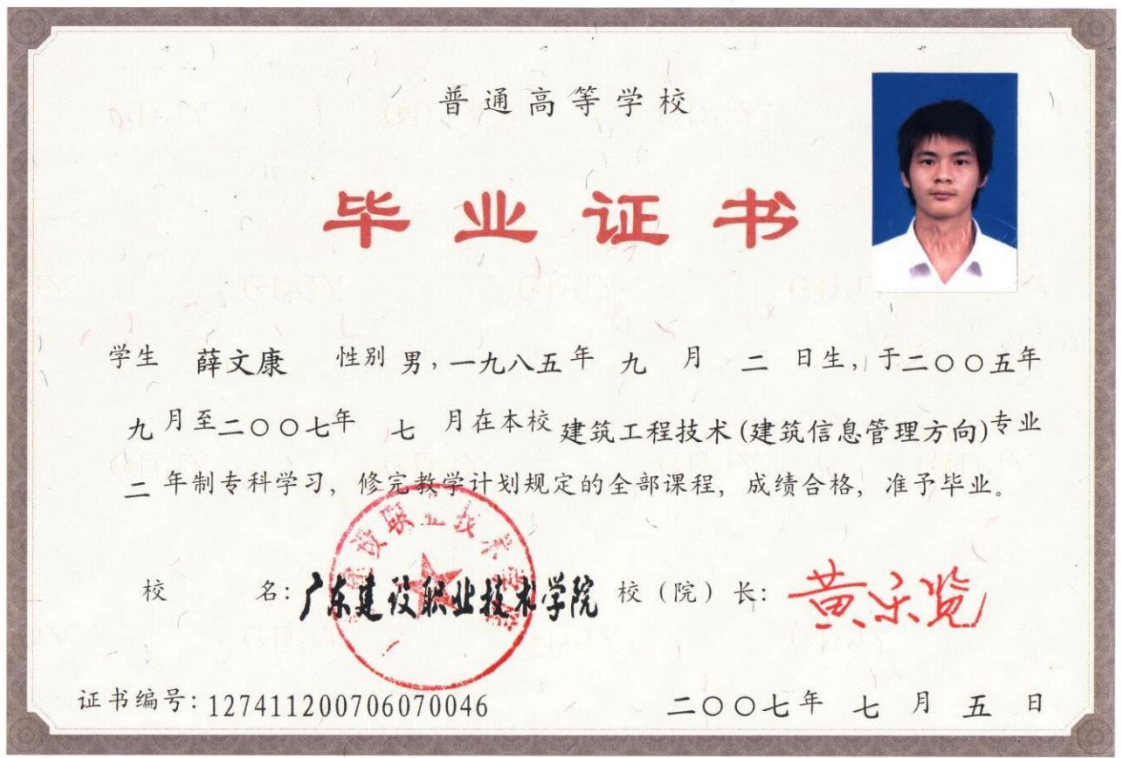 普通高等学校
毕业证书
学生 薛文康 性别 男，一九八五年 九 月 二 日生，于二〇〇五年
九月至二〇〇七年 七 月在本校 建筑工程技术(建筑信息管理方向)专业
二 年制专科学习，修完教学计划规定的全部课程，成绩合格，准予毕业。
校 名：广东建设职业技术学院 校（院）长：黄乐览
证书编号：127411200706070046 二〇〇七年 七 月 五 日